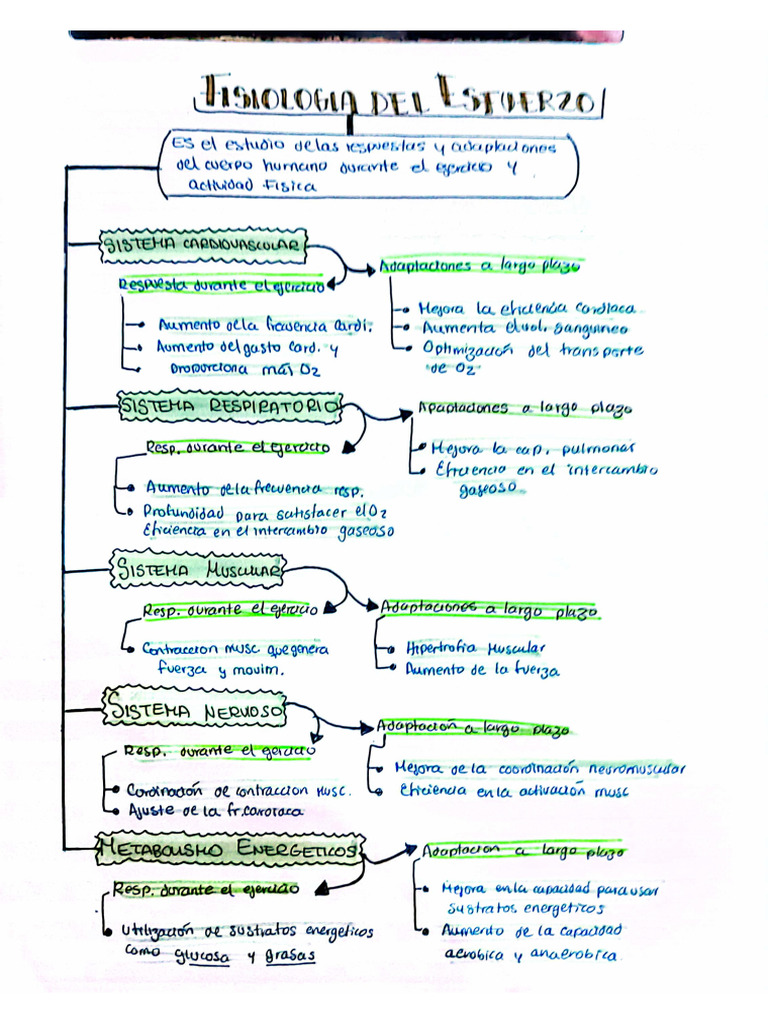 FISIOLOGIA DEL ESFUERZO
Es el estudio de las respuestas y adaptaciones
del cuerpo humano durante el ejercicio y
actividad Fisica
SISTEMA CARDIOVASCULAR
Respuesta durante el ejercicio
Aumento de la frecuencia cardi.
Aumento del gasto card. y
proporciona más O2
Adaptaciones a largo plazo
Mejora la eficiencia cardiaca
Aumenta el vol. sanguineo
Optimización del transporte
de O2
SISTEMA RESPIRATORIO
Resp. durante el ejercicio
Aumento de la frecuencia resp.
Profundidad para satisfacer el O2
Eficiencia en el intercambio gaseoso
Adaptaciones a largo plazo
Mejora la cap. pulmonar
Eficiencia en el intercambio
gaseoso
SISTEMA MUSCULAR
Resp. durante el ejercicio
Contraccion musc que genera
fuerza y movim.
Adaptaciones a largo plazo
Hipertrofia Muscular
Aumento de la fuerza
SISTEMA NERVOSO
Resp. durante el ejercicio
Cordinación de contraccion Musc.
Ajuste de la fr. cardiaca
Adaptación a largo plazo
Mejora de la coordinación neuromuscular
Eficiencia en la activación musc
METABOLISMO ENERGETICOS
Resp. durante el ejercicio
Utilización de sustratos energéticos
como glucosa y grasas
Adaptacion a largo plazo
Mejora en la capacidad para usar
sustratos energeticos
Aumento de la capacidad
aerobica y anaerobica.